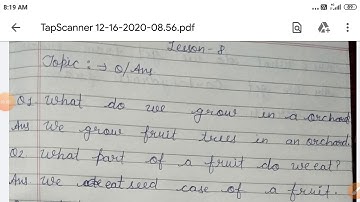 8:19 AM
TapScanner 12-16-2020-08.56.pdf
Lesson - 8.
Topic : → Q/Ans
Q1 What do we grow in a orchard
Ans We grow fruit trees in an orchard.
Q2 What part of a fruit do we eat?
Ans We eat seed case of a fruit.